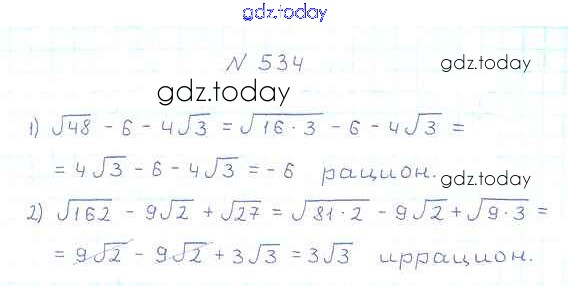 gdz.today
N 534
gdz.today
gdz.today
1) √48 - 6 - 4√3 = √16·3 - 6 - 4√3 =
= 4√3 - 6 - 4√3 = - 6 рацион.
gdz.today
2) √162 - 9√2 + √27 = √81·2 - 9√2 + √9·3 =
= 9√2 - 9√2 + 3√3 = 3√3 иррацион.